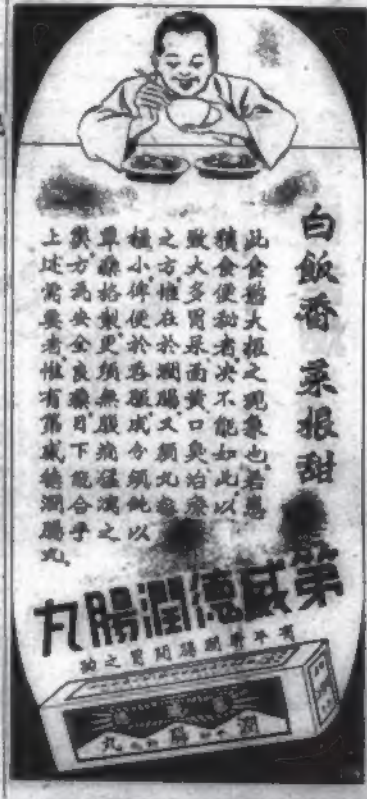 白飯香 菜根甜
此食慾大振之現象也。若患
積食便秘者。決不能如此。以
致大多胃呆面黃口臭。治療
之方。惟在於潤腸。又須丸
極小。俾便於吞服。成分須純以
草藥製。更須無腹痛猛瀉之
弊。方爲安全良藥。目下能合乎
上述需要者。惟有第威德潤腸丸。
第威德潤腸丸
有平肝潤腸開胃之功
潤腸丸